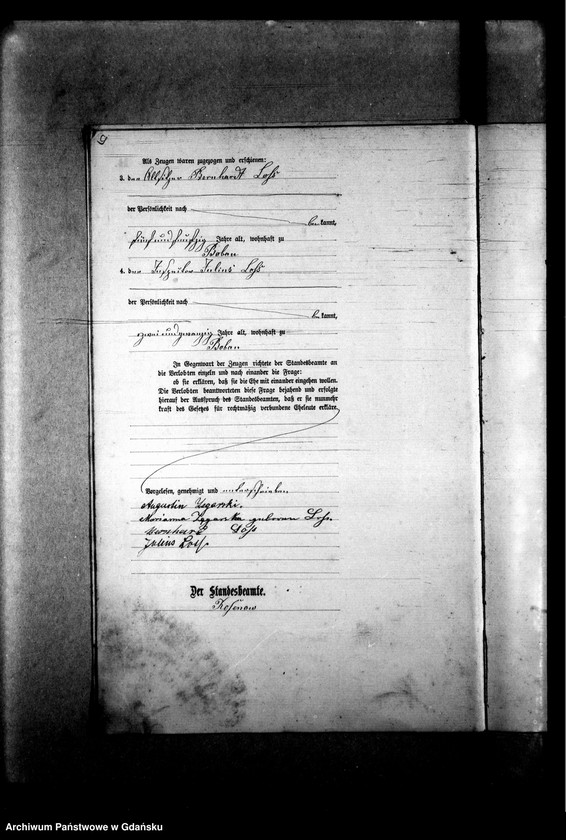 9
Als Zeugen waren zugezogen und erschienen:
3. der Altsitzer Bernhardt Loss
der Persönlichkeit nach
bekannt,
fünfundfünfzig Jahre alt, wohnhaft zu
Boban
4. der Julius Loss
der Persönlichkeit nach
bekannt,
zweiundzwanzig Jahre alt, wohnhaft zu
Boban
In Gegenwart der Zeugen richtete der Standesbeamte an
die Verlobten einzeln und nach einander die Frage:
ob sie erklären, daß sie die Ehe mit einander eingehen wollen.
Die Verlobten beantworteten diese Frage bejahend und erfolgte
hierauf der Ausspruch des Standesbeamten, daß er sie nunmehr
kraft des Gesetzes für rechtmäßig verbundene Eheleute erkläre.
Vorgelesen, genehmigt und unterschrieben
Augustin
Marianna geboren Loss.
Bernhard Loss
Julius Loss
Der Standesbeamte.
Archiwum Państwowe w Gdańsku